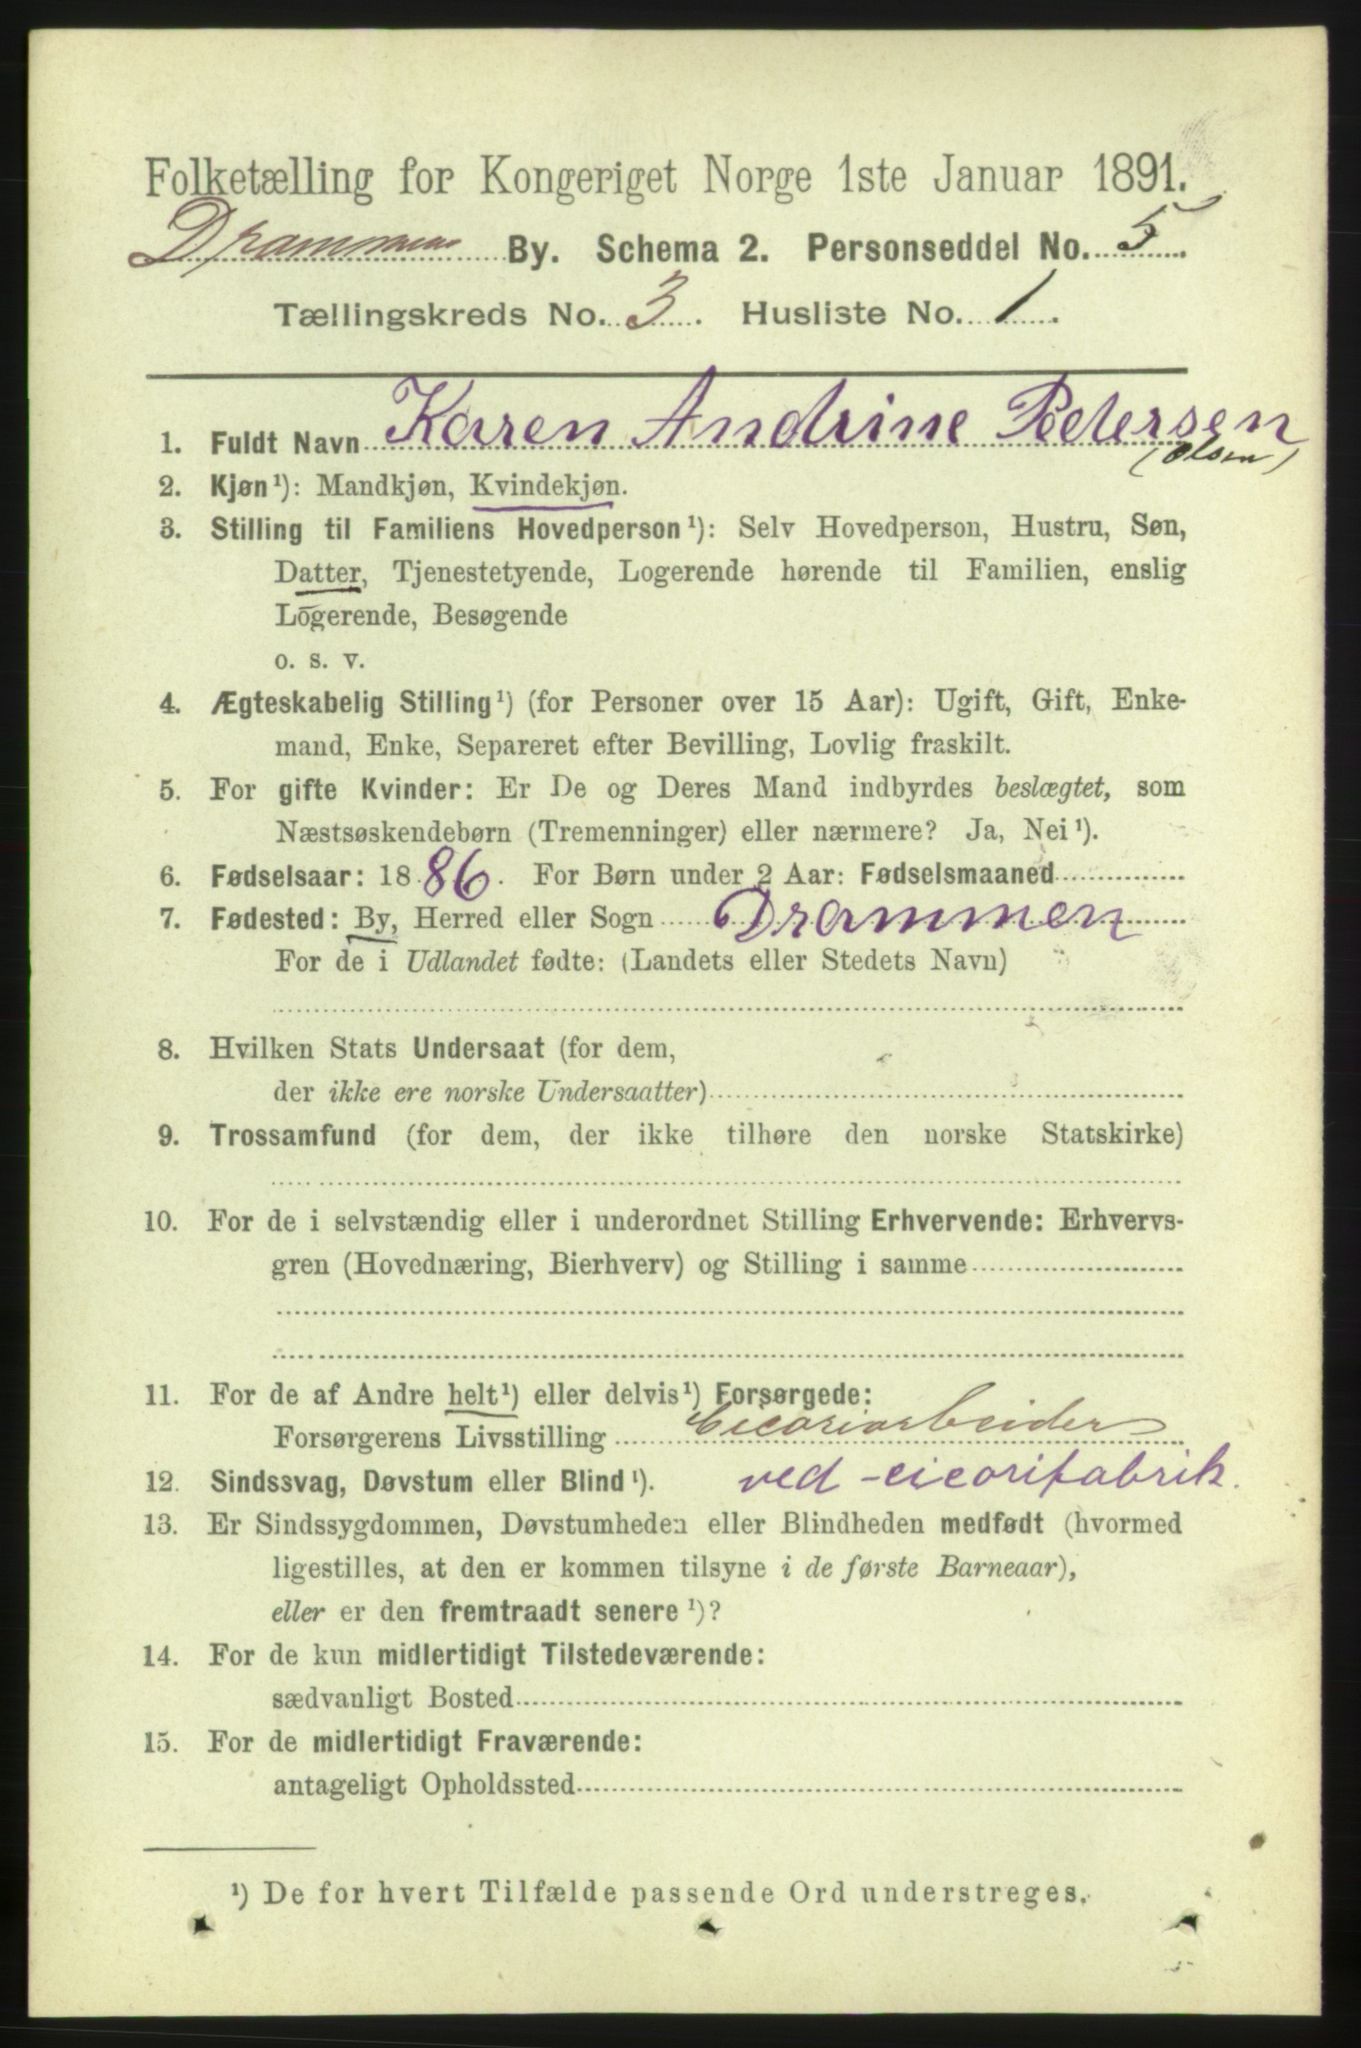 Folketælling for Kongeriget Norge 1ste Januar 1891.
Drammens By. Schema 2. Personseddel No. 5.
Tællingskreds No. 3. Husliste No. 1.
1. Fuldt Navn Karen Andrine Pedersen
(Olsen)
2. Kjøn¹): Mandkjøn, Kvindekjøn.
3. Stilling til Familiens Hovedperson¹): Selv Hovedperson, Hustru, Søn,
Datter, Tjenestetyende, Logerende hørende til Familien, enslig
Logerende, Besøgende
o. s. v.
4. Ægteskabelig Stilling¹) (for Personer over 15 Aar): Ugift, Gift, Enke-
mand, Enke, Separeret efter Bevilling, Lovlig fraskilt.
5. For gifte Kvinder: Er De og Deres Mand indbyrdes beslægtet, som
Næstsøskendebørn (Tremenninger) eller nærmere? Ja, Nei¹).
6. Fødselsaar: 1886. For Børn under 2 Aar: Fødselsmaaned
7. Fødested: By, Herred eller Sogn Drammen
For de i Udlandet fødte: (Landets eller Stedets Navn)
8. Hvilken Stats Undersaat (for dem,
der ikke ere norske Undersaatter)
9. Trossamfund (for dem, der ikke tilhøre den norske Statskirke)
10. For de i selvstændig eller i underordnet Stilling Erhvervende: Erhvervs-
gren (Hovednæring, Bierhverv) og Stilling i samme
11. For de af Andre helt¹) eller delvis¹) Forsørgede:
Forsørgerens Livsstilling Cicoriarbeider
12. Sindssvag, Døvstum eller Blind¹). ved cicorifabrik.
13. Er Sindssygdommen, Døvstumheden eller Blindheden medfødt (hvormed
ligestilles, at den er kommen tilsyne i de første Barneaar),
eller er den fremtraadt senere¹)?
14. For de kun midlertidigt Tilstedeværende:
sædvanligt Bosted
15. For de midlertidigt Fraværende:
antageligt Opholdssted
¹) De for hvert Tilfælde passende Ord understreges.